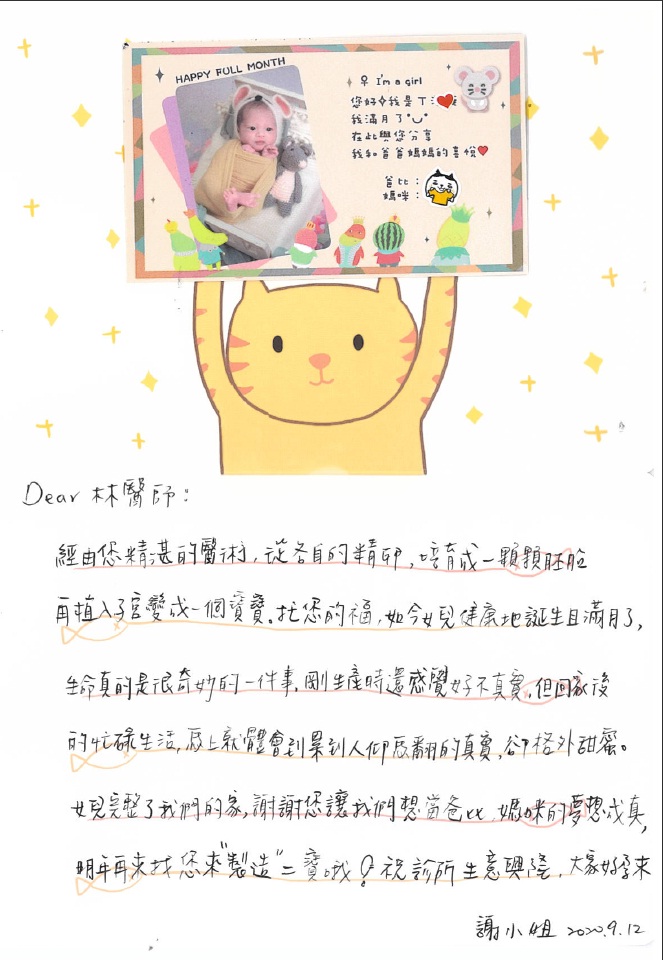 HAPPY FULL MONTH
♀ I'm a girl
您好我是丁
我滿月了
在此與您分享
我和爸爸媽媽的喜悅
爸比：
媽咪：
Dear 林醫師：
經由您精湛的醫術，從各自的精卵，培育成一顆顆胚胎
再植入子宮變成一個寶寶。托您的福，如今女兒健康地誕生且滿月了，
生命真的是很奇妙的一件事，剛生產時還感覺好不真實，但回家後
的忙碌生活，馬上就體會到累到人仰馬翻的真實，卻格外甜蜜。
女兒完整了我們的家，謝謝您讓我們想當爸比、媽咪的夢想成真，
明年再來找您來"製造"二寶哦！祝診所生意興隆，大家好孕來
謝小姐 2020.9.12